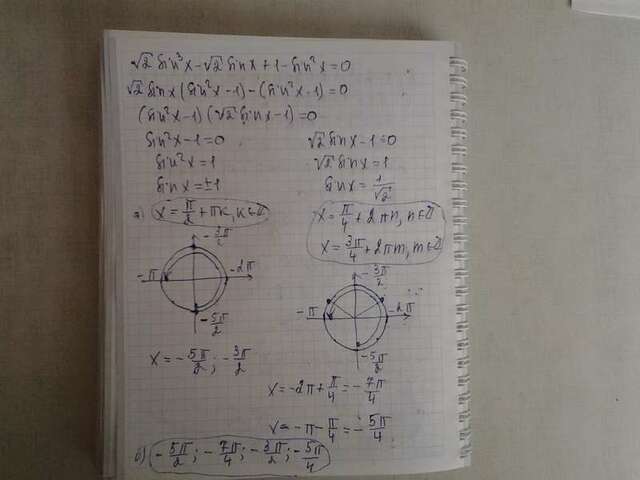 √2 sin³x - √2 sinx + 1 - sin²x = 0
√2 sinx (sin²x - 1) - (sin²x - 1) = 0
(sin²x - 1)(√2 sinx - 1) = 0
sin²x - 1 = 0
sin²x = 1
sinx = ±1
а) x = π/2 + πk, k∈Z
√2 sinx - 1 = 0
√2 sinx = 1
sinx = 1/√2
x = π/4 + 2πn, n∈Z
x = 3π/4 + 2πm, m∈Z
-3π/2
-π
-2π
-5π/2
x = -5π/2; -3π/2
-3π/2
-π
-2π
-5π/2
x = -2π + π/4 = -7π/4
x = -π - π/4 = -5π/4
б) -5π/2; -7π/4; -3π/2; -5π/4